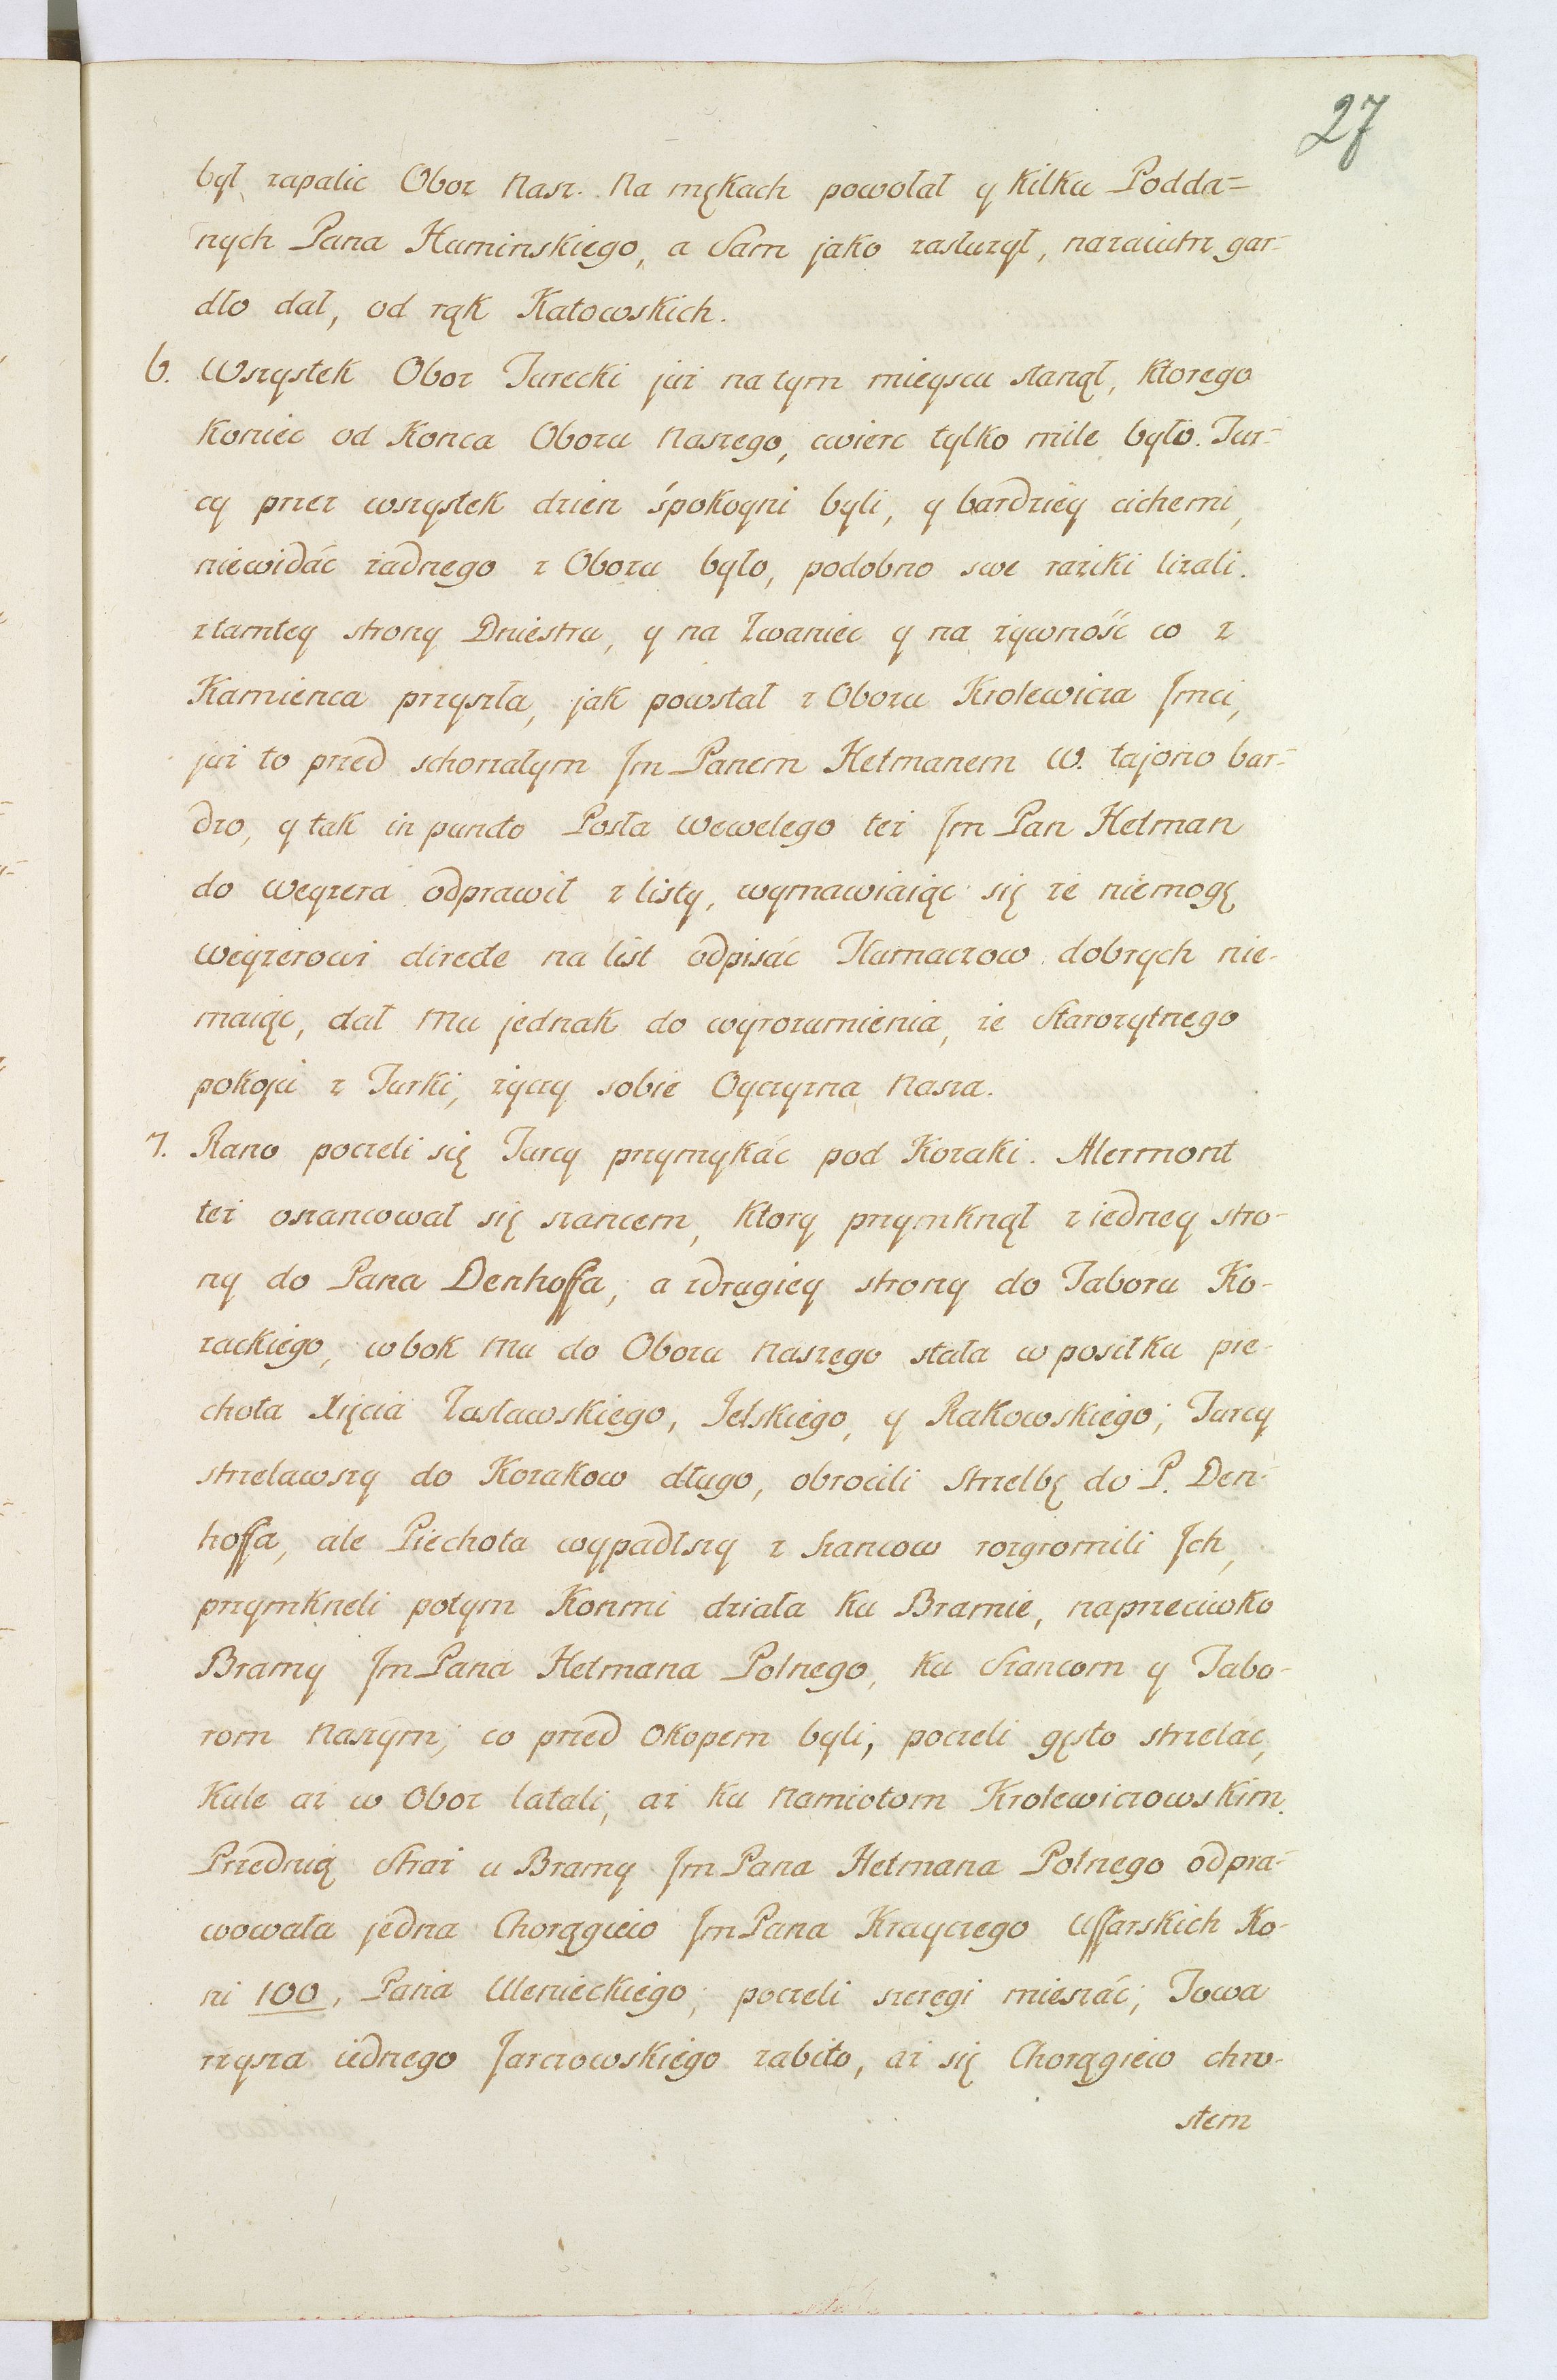 27
był zapalic Oboz Nasz. Na mękach powołał y kilku Podda=
nych Pana Huminskiego, a Sam jako zasłuzył, nazaiutrz gar-
dło dał, od rąk Katowskich.
6. Wszystek Oboz Turecki już na tym mieyscu stanął, ktorego
koniec od Konca Obozu Naszego, cwierc tylko mile było. Tur-
cy przez wszystek dzien spokoyni byli, y bardziey cichemi,
niewidác żadnego z Obozu było, podobno swe raziki lizali.
ztamtey strony Dniestru, y na Zwaniec y na żywność co z
Kamienca przyszła, jak powstał z Obozu Krolewicza Jmci,
już to przed schorzałym Jm Panem Hetmanem W. tajono bar-
dzo, y tak in puncto Posła Wewelego też Jm Pan Hetman
do wezyra odprawił z listy, wymawiaiąc się że niemogę
wezyrowi directe na list odpisác Tłumaczow dobrych nie-
maiąc, dał Mu jednak do wyrozumienia, że Starozytnego
pokoju z Turki, życzy sobie Oyczyzna Nasza.
7. Rano poczeli się Turcy przymykác pod Kozaki. Alermont
też oszancował się szancem, ktory przymknął z iedney stro-
ny do Pana Denhoffa, a zdrugiey strony do Taboru Ko-
zackiego, w bok Mu do Obozu Naszego stała w posiłku pie-
chota Xięcia Zasławskiego, Jelskiego, y Rakowskiego; Turcy
strzelawszy do Kozakow długo, obrocili Strzelbę do P. Den-
hoffa, ale Piechota wypadłszy z Szancow rozgromili Ich,
przymkneli potym Konmi działa ku Bramie, naprzeciwko
Bramy Jm Pana Hetmana Polnego, ku Szancom y Tabo-
rom Naszym; co przed Okopem byli, poczeli gęsto strzelac,
Kule aż w Oboz latali, aż ku Namiotom Krolewiczowskim.
Przednią Straż u Bramy Jm Pana Hetmana Polnego odpra-
wowała jedna Chorągiew Jm Pana Krayczego Ussarskich Ko-
ni 100, Pana Ulenieckiego; poczeli szeregi mieszác; Towa
rzysza iednego Jarczowskiego zabito, aż się Chorągiew chro-
stem